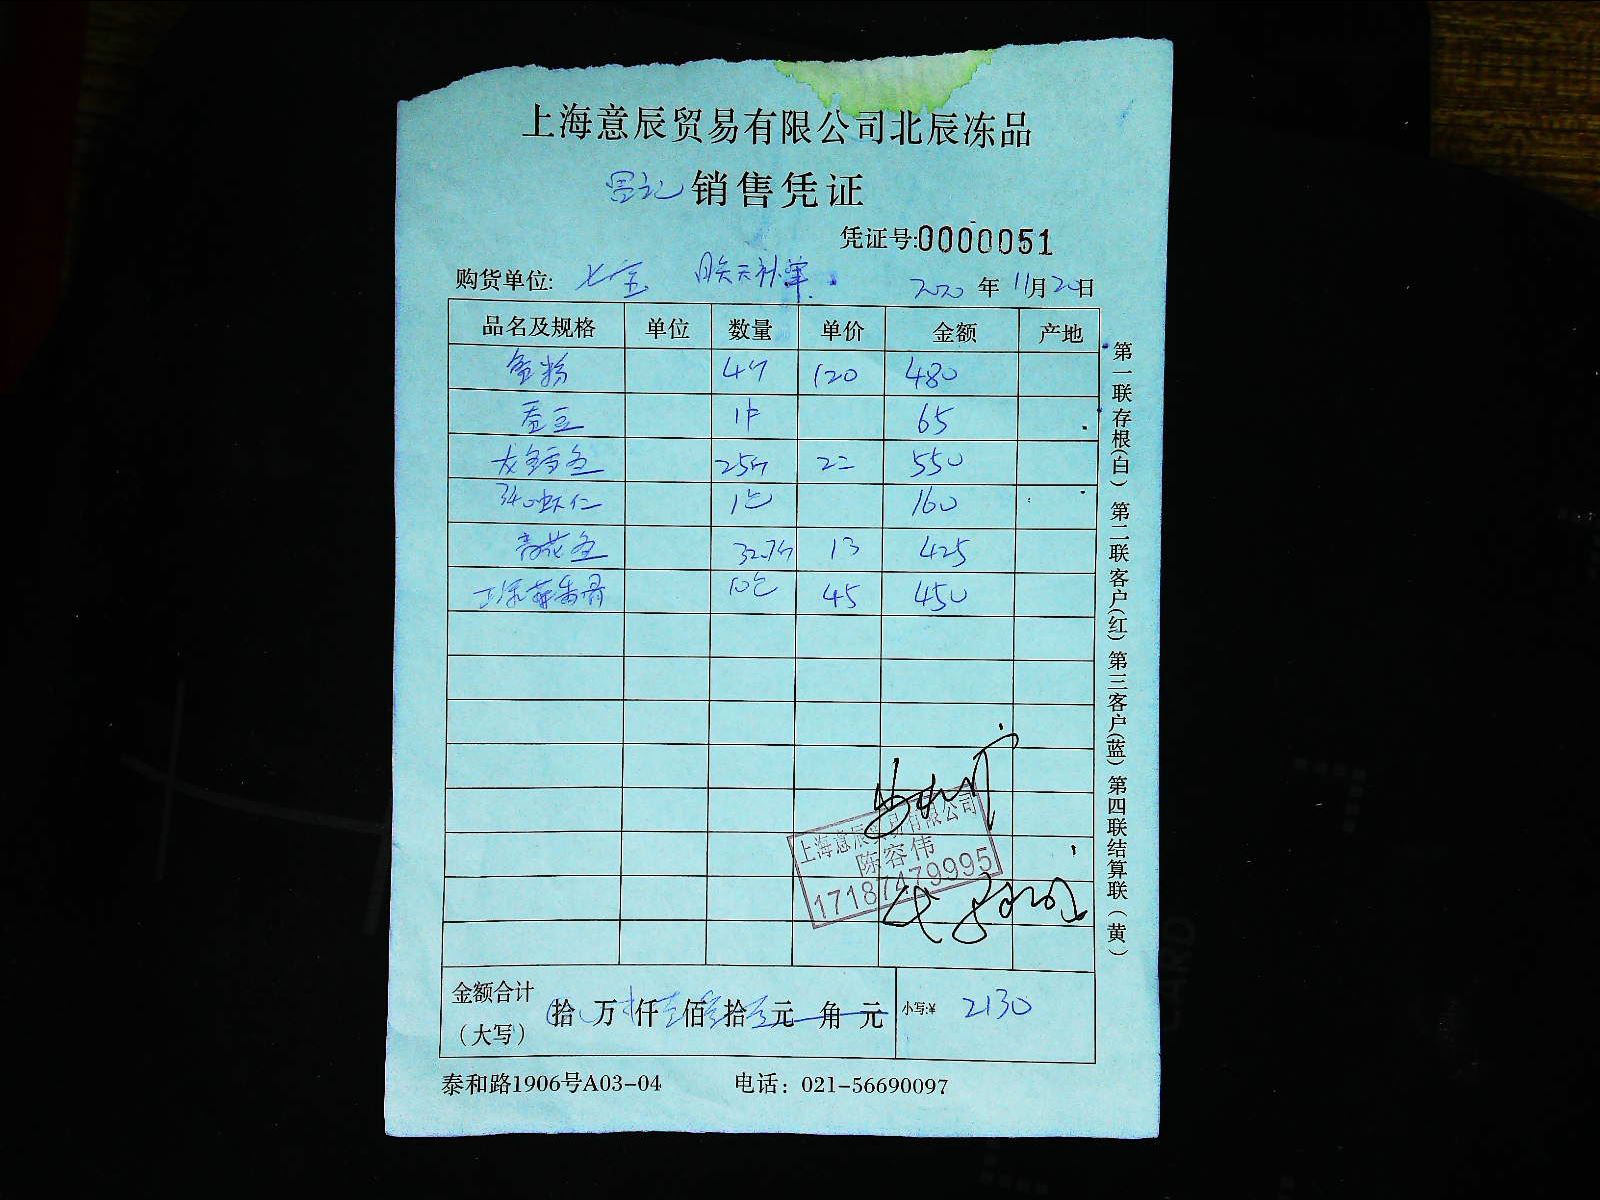 上海意辰贸易有限公司北辰冻品
销售凭证
凭证号:0000051
购货单位: 七宝 昨天补单 2020年11月20日
品名及规格 单位 数量 单价 金额 产地
4斤 120 480
1件 65
25斤 22 550
虾仁 1包 160
青花鱼 32.7斤 13 425
10包 45 450
第一联存根(白) 第二联客户(红) 第三客户(蓝) 第四联结算联(黄)
上海意辰贸易有限公司
陈容伟
17187479995
金额合计(大写) 拾 万 仟 佰 拾 元 角 元 小写:¥ 2130
泰和路1906号A03-04 电话: 021-56690097